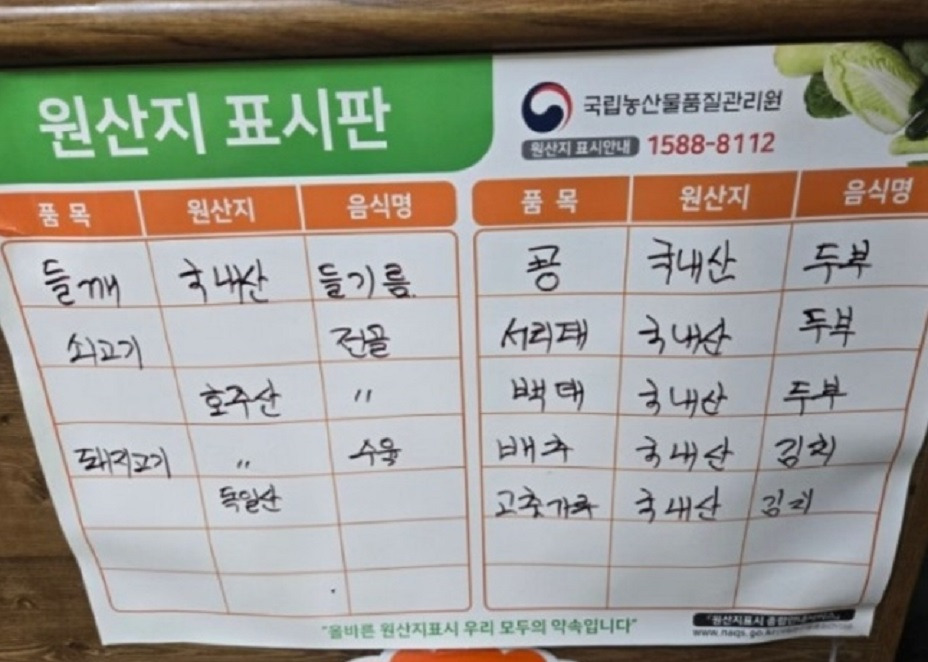 원산지 표시판
국립농산물품질관리원
원산지 표시안내 1588-8112
품 목 원산지 음식명
들깨 국내산 들기름
쇠고기 전골
호주산 〃
돼지고기 〃 수육
독일산
품 목 원산지 음식명
콩 국내산 두부
서리태 국내산 두부
백태 국내산 두부
배추 국내산 김치
고춧가루 국내산 김치
"올바른 원산지표시 우리 모두의 약속입니다"
www.naqs.go.kr